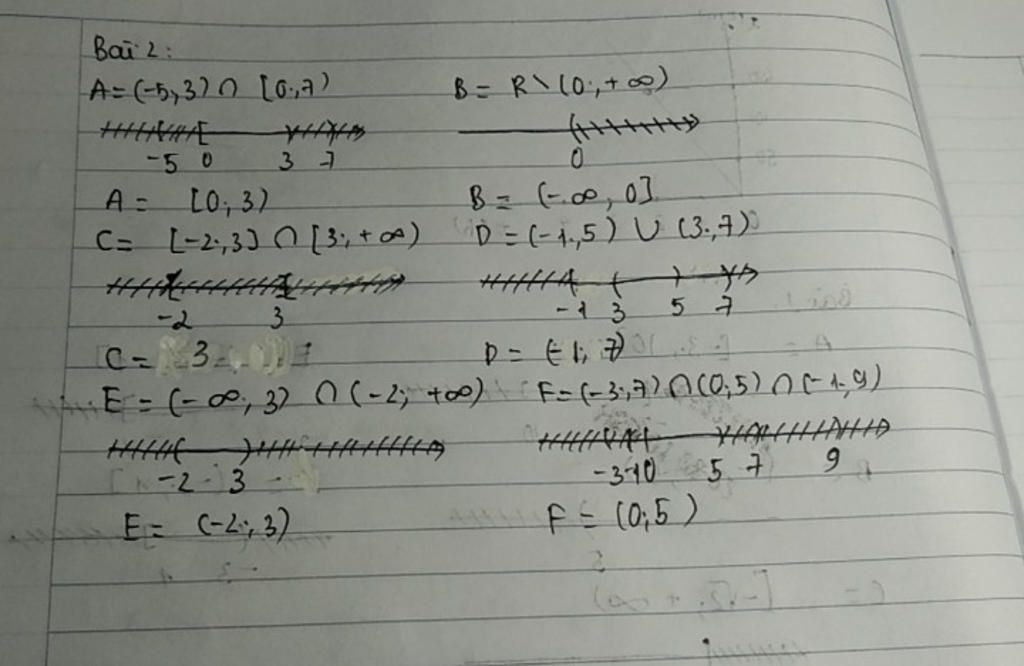 Bài 2:
A = (-5; 3) ∩ [0; 7) B = R \ (0; +∞)
-5 0 3 7 0
A = [0; 3) B = (-∞, 0]
C = [-2; 3] ∩ [3; +∞) D = (-1; 5) ∪ (3; 7)
-2 3 -1 3 5 7
C = 3 D = (-1; 7)
E = (-∞; 3) ∩ (-2; +∞) F = (-3; 7) ∩ (0; 5) ∩ (-1, 9)
-2 3 -3 -1 0 5 7 9
E = (-2; 3) F = (0; 5)